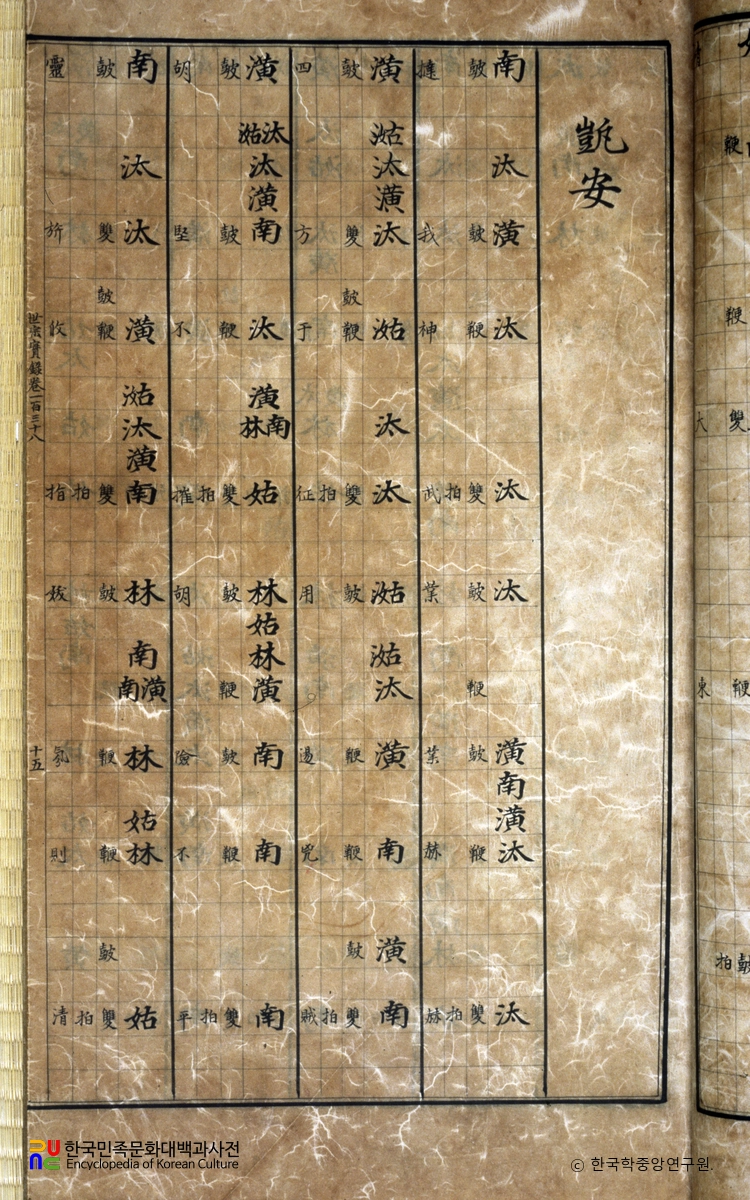 凱安
南汰潢汰汰汰潢南潢汰汰
皷皷鞭雙皷鞭皷鞭雙
拍拍
撻我神武業業赫赫
潢㴌汰潢汰㴌汰汰㴌㴌汰潢南潢南
皷雙皷鞭雙皷鞭鞭皷雙
拍拍
四方于征用盪兇賊
潢㴌汰汰潢南汰潢林南姑林姑林潢南南南
皷皷鞭雙皷鞭皷鞭雙
拍拍
胡堅不摧胡險不平
南汰汰潢㴌汰潢南林南南潢林姑林姑
皷雙皷鞭雙皷鞭鞭皷雙
拍拍
靈旂攸指妖氛則清
世宗實錄卷一百三十八 十五
한국민족문화대백과사전
Encyclopedia of Korean Culture
© 한국학중앙연구원.